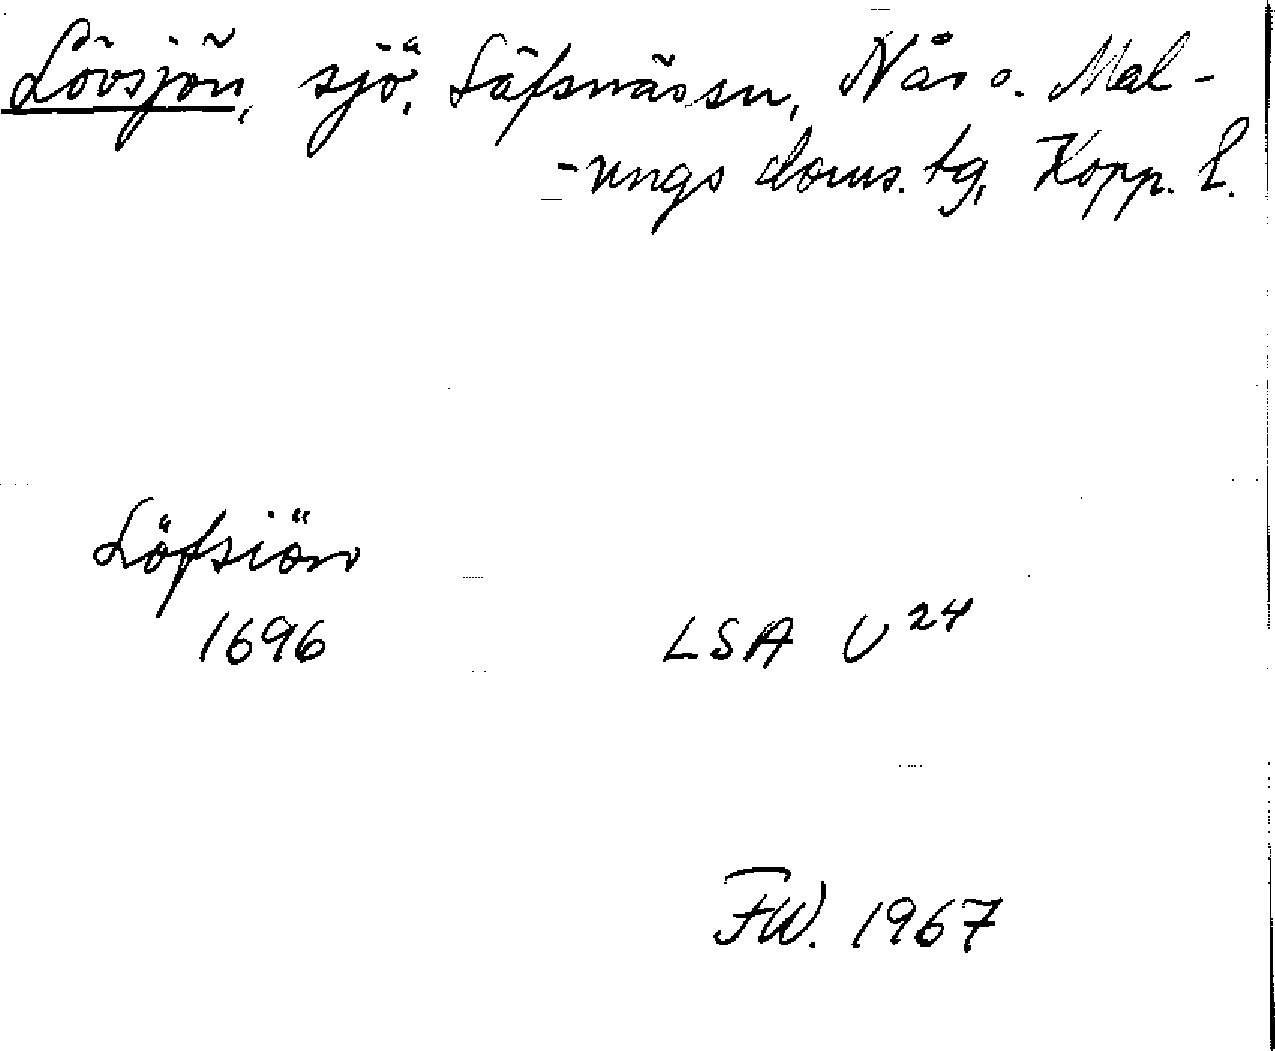 Lövsjön, sjö, Säfsnäs sn, Nås o. Mal-
-ungs doms. tg, Kopp. l.
Löfsiön
1696 LSA U 24
FW. 1967